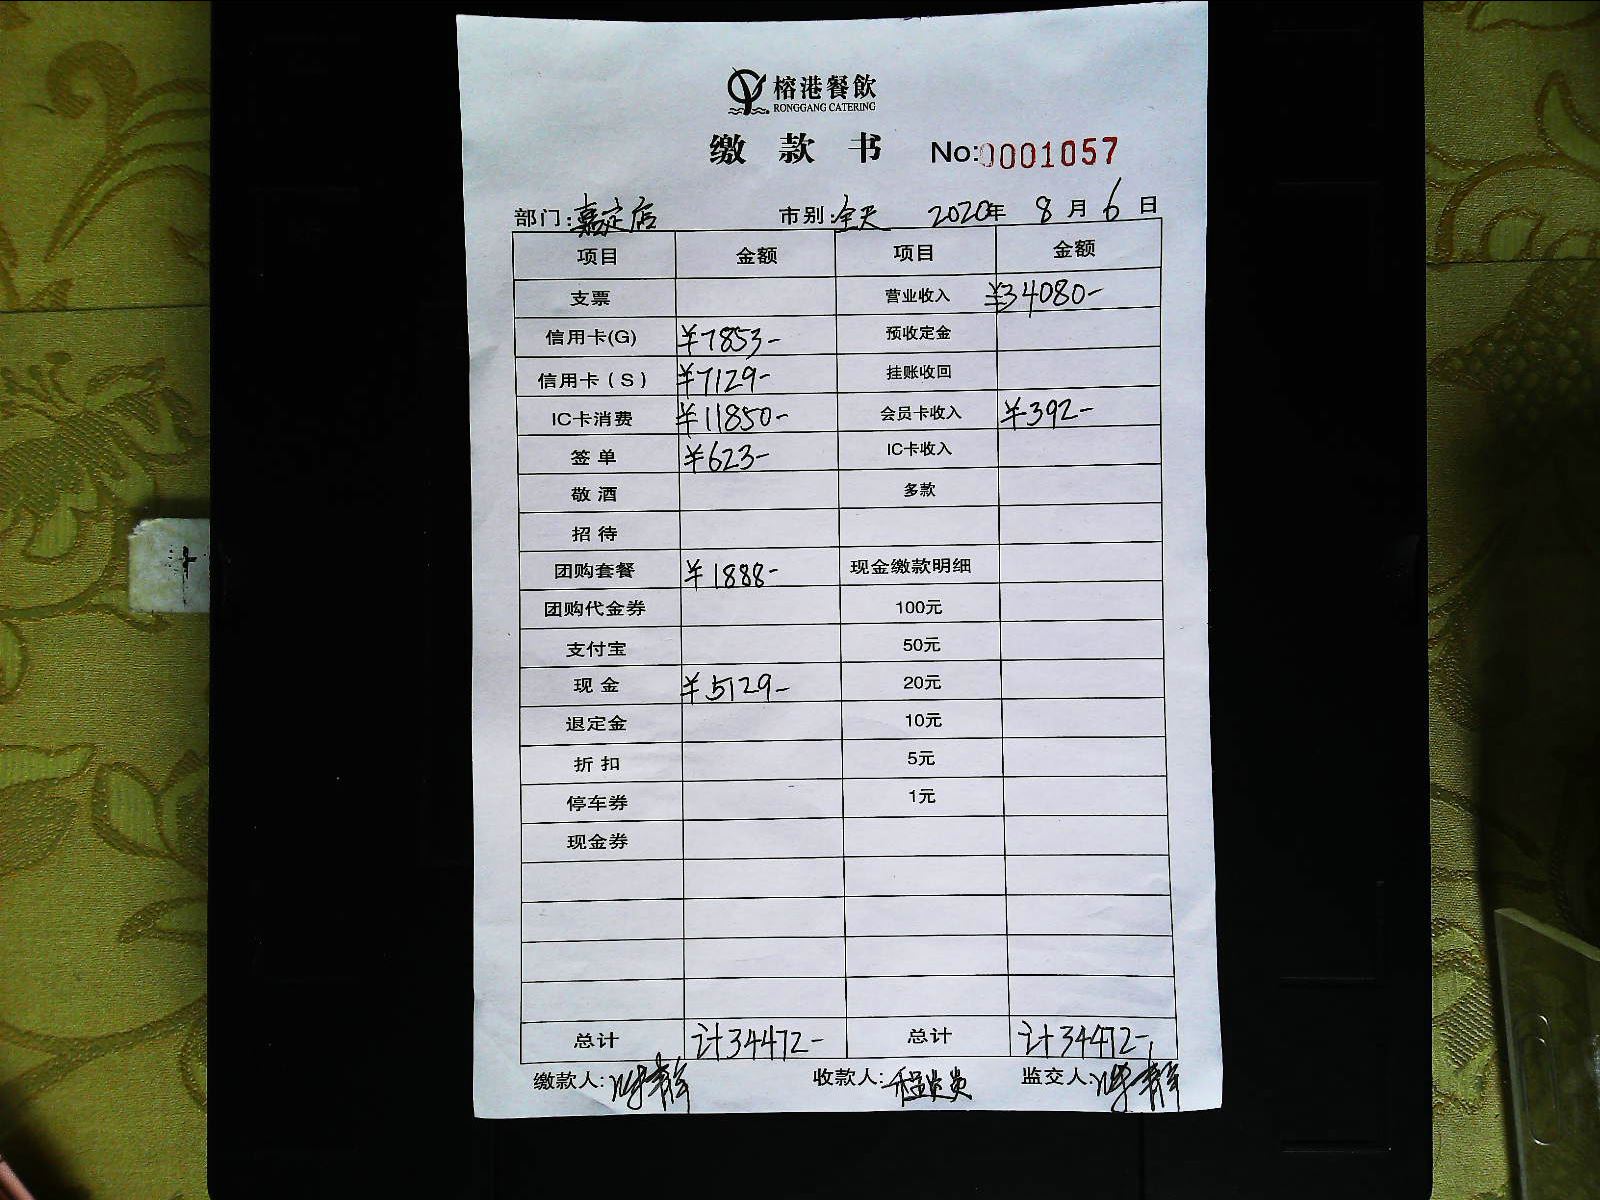 榕港餐飲
RONGGANG CATERING
缴款书 No:0001057
部门:嘉定店 市别:全天 2020年 8月 6日
项目 金额 项目 金额
支票 营业收入 ¥34080-
信用卡(G) ¥7853- 预收定金
信用卡(S) ¥7129- 挂账收回
IC卡消费 ¥11850- 会员卡收入 ¥392-
签单 ¥623- IC卡收入
敬酒 多款
招待
团购套餐 ¥1888- 现金缴款明细
团购代金券 100元
支付宝 50元
现金 ¥5129- 20元
退定金 10元
折扣 5元
停车券 1元
现金券
总计 计34472- 总计 计34472-
缴款人: 收款人: 监交人: